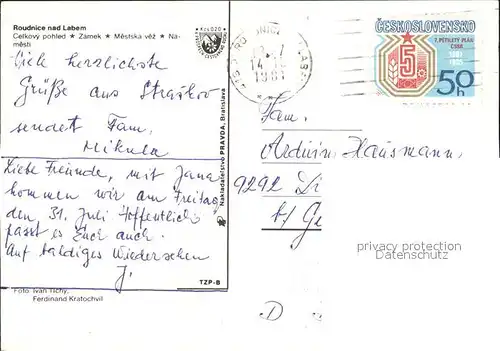 Roudnice nad Labem
Celkový pohled ★ Zámek ★ Městská věž ★ Ná-
městí
Viele herzlichste
Grüße aus Straškov
sendet Fam.
Mikula
Liebe Freunde, mit Jana
kommen wir am Freitag
den 31. Juli Hoffentlich
passt es Euch auch.
Auf baldiges Wiedersehen
J.
TZP-B
Foto: Ivan Tichý,
Ferdinand Kratochvíl
Nakladatelství PRAVDA, Bratislava
Kčs 0,20
1981
ČESKOSLOVENSKO
7. PĚTILETÝ PLÁN
ČSSR
1981
1985
5
50h
Fam.
Arduin Hausmann,
9292 Di
b/ Ge
D
privacy protection
Datenschutz